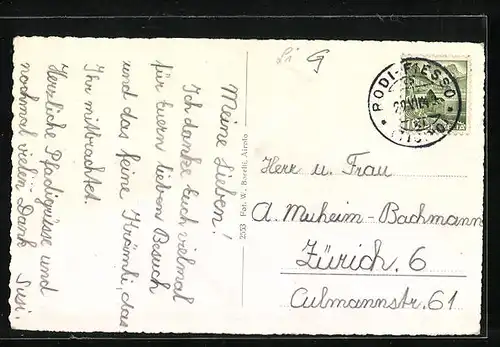 Meine Lieben!
Ich danke Euch vielmal
für Euern lieben Besuch
und das feine Krämli, das
Ihr mitbrachtet.
Herzliche Pfadigrüsse und
nochmal vielen Dank Susi.
2153 Fot. W. Borelli, Airolo
Herr u. Frau
A. Muheim-Bachmann
Zürich. 6
Culmannstr. 61
RODI-FIESSO
(TICINO)